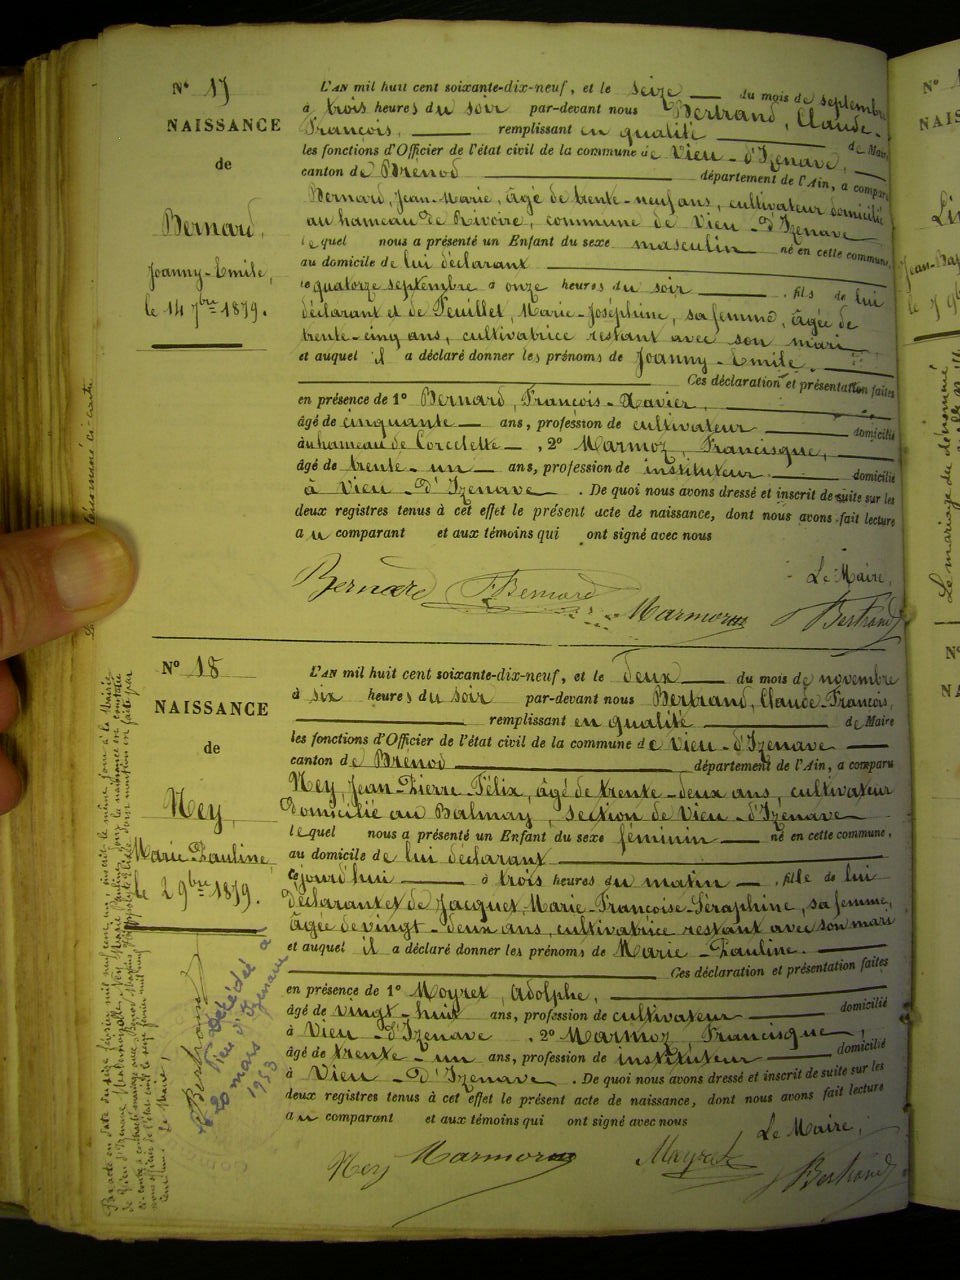 N° 17
NAISSANCE
de
Bernard,
Joanny-Emile,
le 14 7bre 1879.
L'AN mil huit cent soixante-dix-neuf, et le seize du mois de septembre
à trois heures du soir par-devant nous Bertrand, Claude-
François, remplissant en qualité de Maire
les fonctions d'Officier de l'état civil de la commune de Vieu-d'Izenave,
canton de Brénod département de l'Ain, a comparu
Bernard, Jean-Marie, âgé de trente-neuf ans, cultivateur domicilié
au hameau de Rivoire, commune de Vieu-d'Izenave
lequel nous a présenté un Enfant du sexe masculin né en cette commune,
au domicile de lui déclarant
le quatorze septembre à onze heures du soir, fils de lui
déclarant et de Feuillet, Marie-Joséphine, sa femme, âgée de
trente-cinq ans, cultivatrice restant avec son mari
et auquel il a déclaré donner les prénoms de Joanny-Emile.
Ces déclaration et présentation faites
en présence de 1° Bernard, François-Xavier,
âgé de cinquante ans, profession de cultivateur domicilié
au hameau de Corcelette, 2° Marmoz, Francisque,
âgé de trente-un ans, profession de instituteur domicilié
à Vieu-d'Izenave. De quoi nous avons dressé et inscrit de suite sur les
deux registres tenus à cet effet le présent acte de naissance, dont nous avons fait lecture
au comparant et aux témoins qui ont signé avec nous
Le Maire,
Bernard F. Bernard Marmoz Bertrand
N° 18
NAISSANCE
de
Ney,
Marie Pauline,
le 2 9bre 1879.
L'AN mil huit cent soixante-dix-neuf, et le deux du mois de novembre
à six heures du soir par-devant nous Bertrand, Claude-François,
remplissant en qualité de Maire
les fonctions d'Officier de l'état civil de la commune de Vieu-d'Izenave
canton de Brénod département de l'Ain, a comparu
Ney, Jean-Pierre Félix, âgé de trente-deux ans, cultivateur
domicilié au Balmay, section de Vieu-d'Izenave
lequel nous a présenté un Enfant du sexe féminin né en cette commune,
au domicile de lui déclarant
cejourd'hui à trois heures du matin, fille de lui
déclarant et de Jacquet, Marie-Françoise-Séraphine, sa femme,
âgée de vingt-deux ans, cultivatrice restant avec son mari
et auquel il a déclaré donner les prénoms de Marie-Pauline.
Ces déclaration et présentation faites
en présence de 1° Moyret, Adolphe,
âgé de vingt-huit ans, profession de cultivateur domicilié
à Vieu-d'Izenave, 2° Marmoz, Francisque,
âgé de trente-un ans, profession de instituteur domicilié
à Vieu-d'Izenave. De quoi nous avons dressé et inscrit de suite sur les
deux registres tenus à cet effet le présent acte de naissance, dont nous avons fait lecture
au comparant et aux témoins qui ont signé avec nous
Le Maire,
Ney Marmoz Mayret Bertrand
Décédée à
Vieu d'Izenave
mars 1953
Le mariage du dénommé